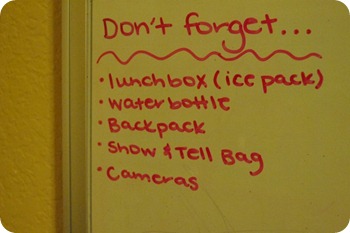 Don't forget...
• lunchbox (ice pack)
• waterbottle
• Backpack
• Show & Tell Bag
• Cameras